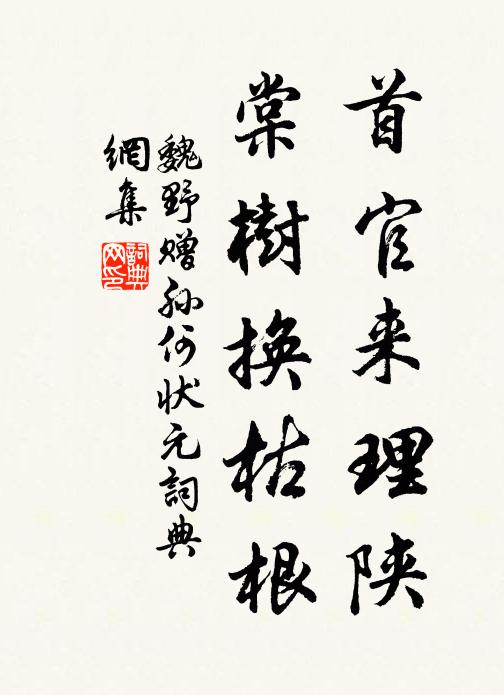 首官来理陕
棠樹换枯根
魏野赠孙何状元詞典
網集
詞典
网印